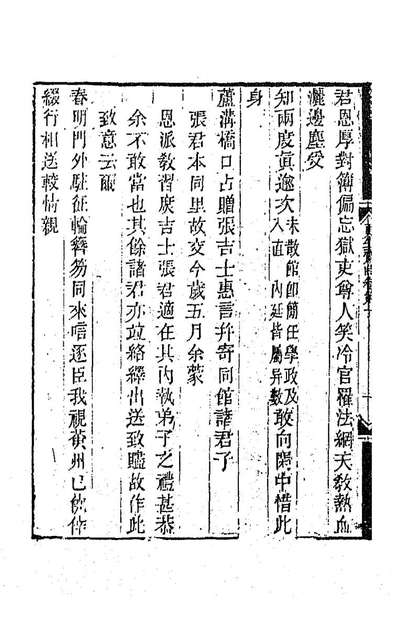 君恩厚對簿偏忘獄吏尊人笑冷官罹法網天教熱血
灑邊塵受
知兩度眞逾次未散館卽簡任學政及入直內廷皆屬異數敢向閑中惜此
身
蘆溝橋口占贈張吉士惠言幷寄同館諸君子
張君本同里故交今歲五月余蒙
恩派敎習庶吉士張君適在其內執弟子之禮甚恭
余不敢當也其餘諸君亦並絡繹出送致贐故作此
致意云爾
春明門外駐征輪簪笏同來唁逐臣我視黃州已
綴行相送較情親